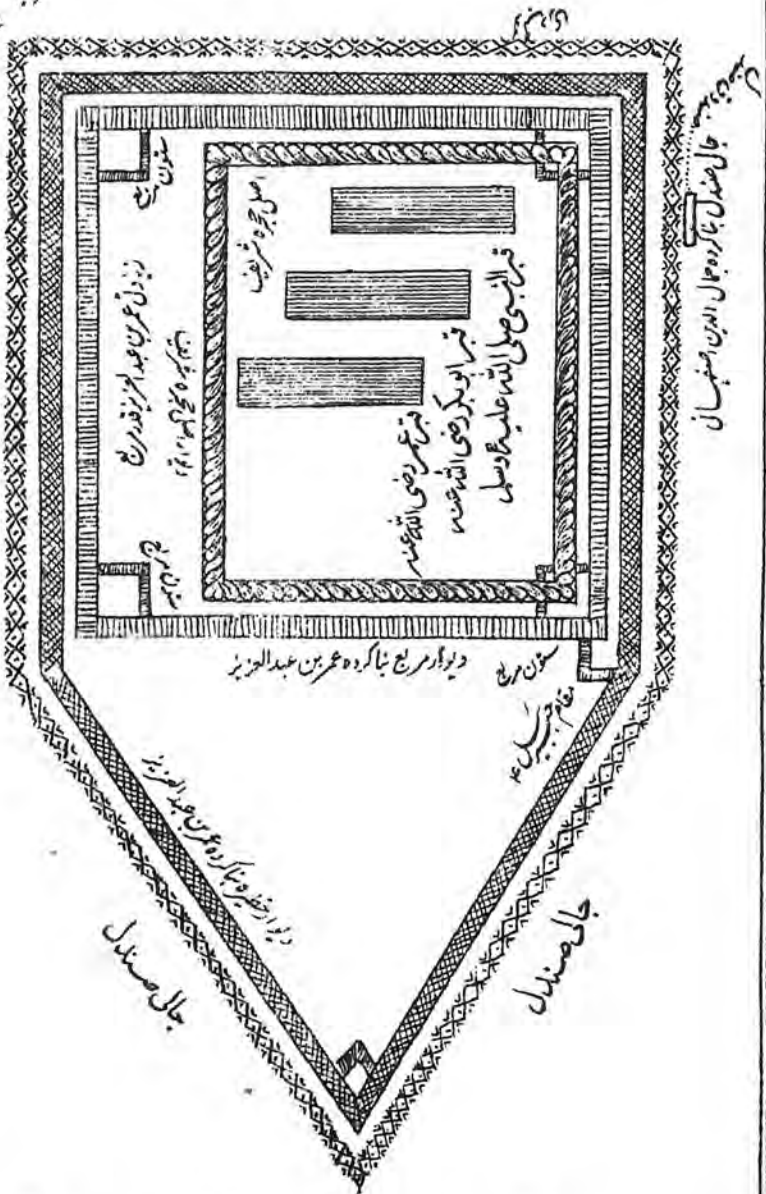 جالی صندل بنا کردہ جمال الدین اصفہانی
ستون مربع
اصلی حجرہ شریف
قبر النبی صلی اللہ علیہ وسلم
قبر ابوبکر رضی اللہ عنہ
قبر عمر رضی اللہ عنہ
عمر بن عبدالعزیز قدر مربع
دیوار مربع بنا کردہ عمر بن عبدالعزیز
ستون مربع
مقام جبریل ۴
دیوار حظیرہ بنا کردہ عمر بن عبدالعزیز
جالی صندل
جالی صندل